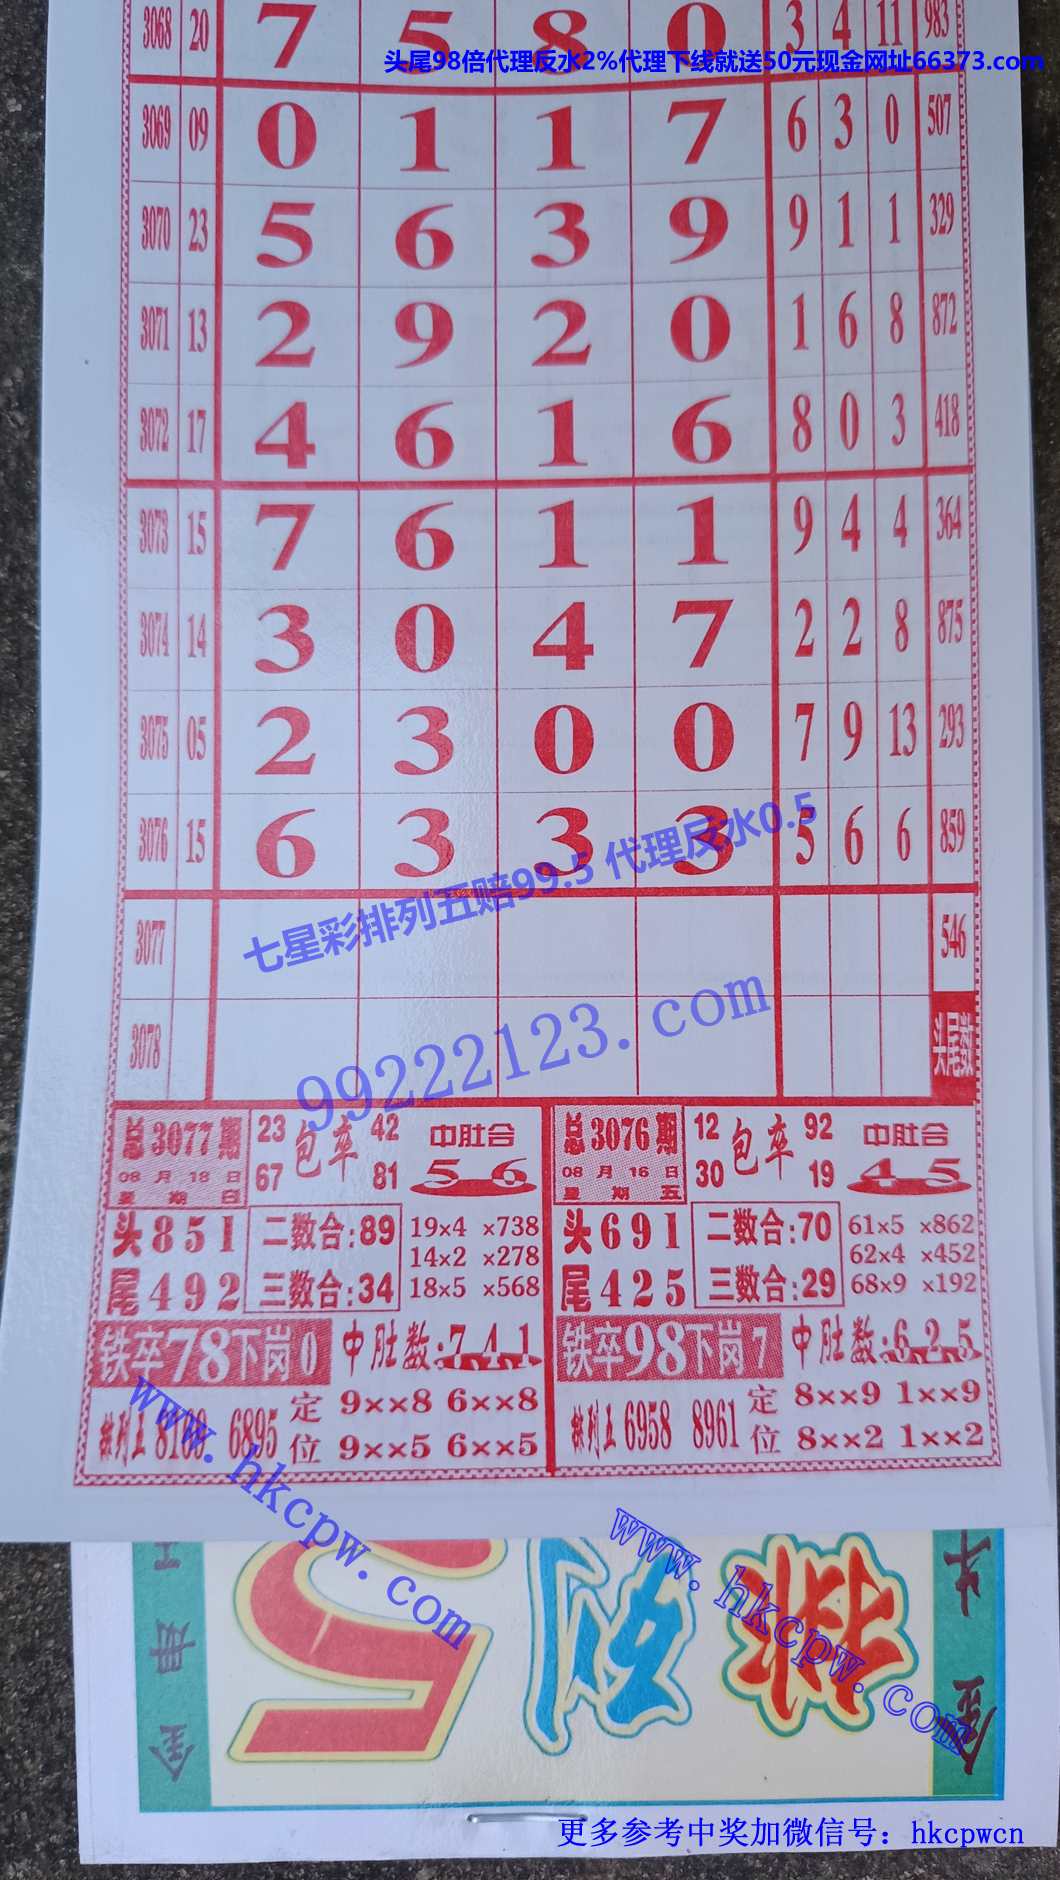 3068 20 7 5 8 0 3 4 11 983
头尾98倍代理反水2%代理下线就送50元现金网址66373.com
3069 09 0 1 1 7 6 3 0 507
3070 23 5 6 3 9 9 1 1 329
3071 13 2 9 2 0 1 6 8 872
3072 17 4 6 1 6 8 0 3 418
3073 15 7 6 1 1 9 4 4 364
3074 14 3 0 4 7 2 2 8 875
3075 05 2 3 0 0 7 9 13 293
3076 15 6 3 3 3 5 6 6 859
七星彩排列五赔99.5 代理反水0.5
3077 546
3078 头尾数
99222123.com
总3077期
08月18日
星期日
23 包牢 42
67 81
中肚合
5 6
头851
尾492
二数合:89
三数合:34
19×4 ×738
14×2 ×278
18×5 ×568
铁卒78下岗0
中肚数:7 4 1
排列五 6895
定位
9××8 6××8
9××5 6××5
总3076期
08月16日
星期五
12 包牢 92
30 19
中肚合
4 5
头691
尾425
二数合:70
三数合:29
61×5 ×862
62×4 ×452
68×9 ×192
铁卒98下岗7
中肚数:6 2 5
排列五 6958 8961
定位
8××9 1××9
8××2 1××2
www.hkcpw.com
www.hkcpw.com
5
排
更多参考中奖加微信号：hkcpwcn